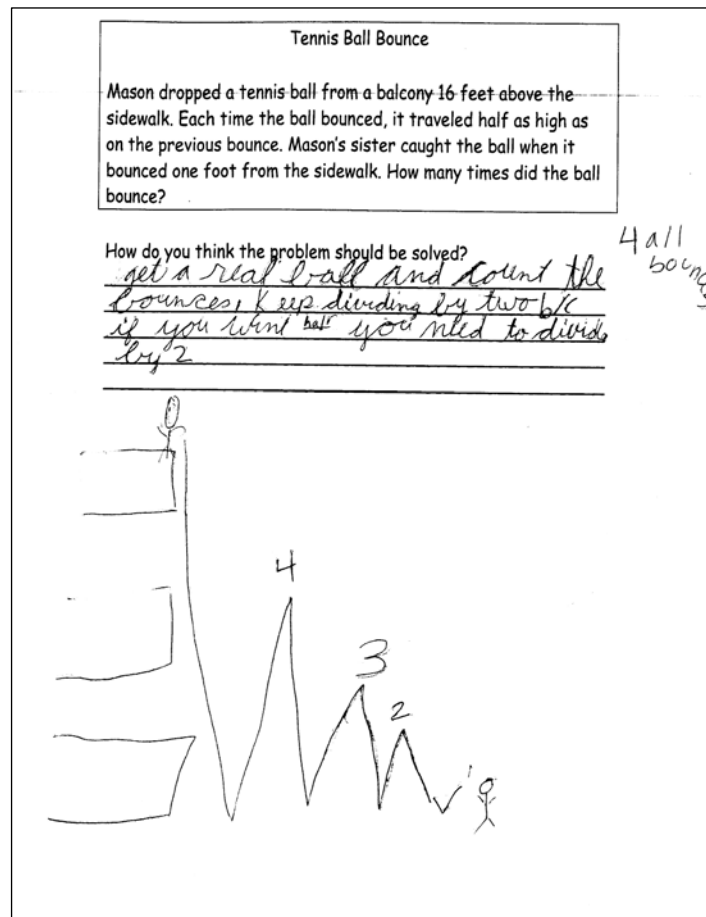 Tennis Ball Bounce
Mason dropped a tennis ball from a balcony 16 feet above the
sidewalk. Each time the ball bounced, it traveled half as high as
on the previous bounce. Mason's sister caught the ball when it
bounced one foot from the sidewalk. How many times did the ball
bounce?
How do you think the problem should be solved?
4 all
get a real ball and count the
bounces, Keep dividing by two b/c
if you want half you need to divide
by 2
4
3
2
1